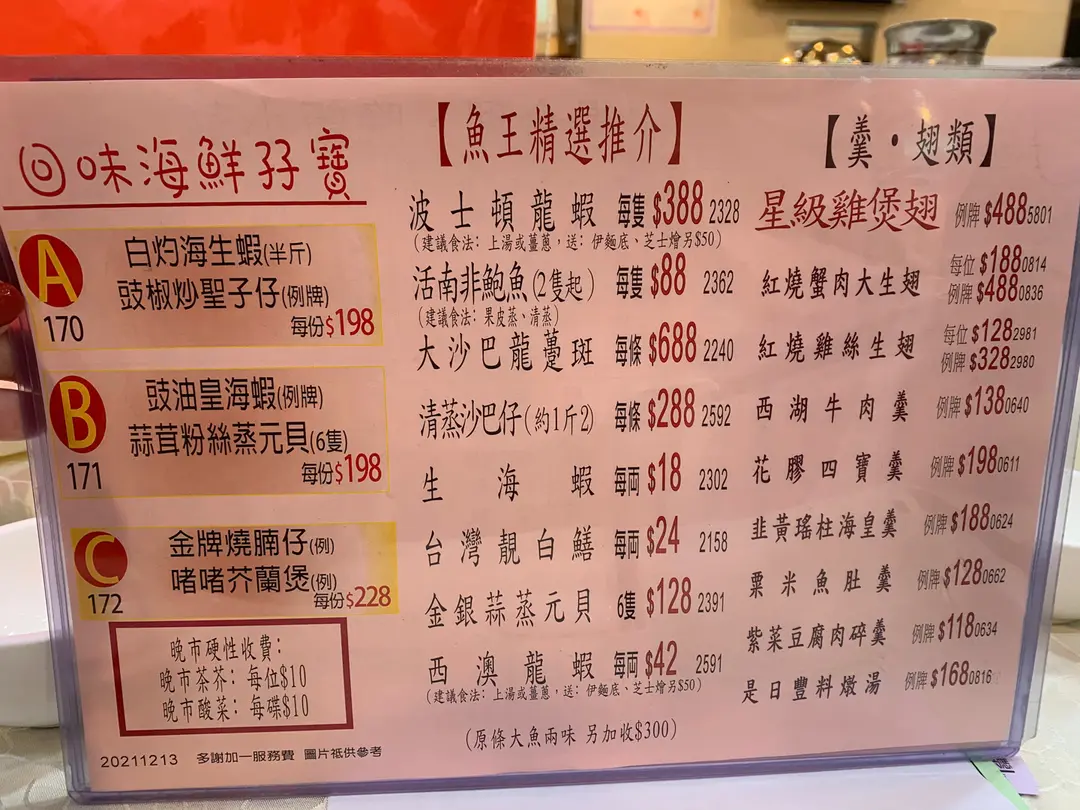 回味海鮮孖寶
A
170
白灼海生蝦(半斤)
豉椒炒聖子仔(例牌)
每份$198
B
171
豉油皇海蝦(例牌)
蒜茸粉絲蒸元貝(6隻)
每份$198
C
172
金牌燒腩仔(例)
啫啫芥蘭煲(例)
每份$228
晚市硬性收費:
晚市茶芥: 每位$10
晚市酸菜: 每碟$10
20211213 多謝加一服務費 圖片祗供參考
【魚王精選推介】
波士頓龍蝦 每隻 $388 2328
(建議食法: 上湯或薑蔥, 送: 伊麵底、芝士燴另$50)
活南非鮑魚(2隻起) 每隻 $88 2362
(建議食法: 果皮蒸、清蒸)
大沙巴龍躉斑 每條 $688 2240
清蒸沙巴仔(約1斤2) 每條 $288 2592
生海蝦 每両 $18 2302
台灣靚白鱔 每両 $24 2158
金銀蒜蒸元貝 6隻 $128 2391
西澳龍蝦 每両 $42 2591
(建議食法: 上湯或薑蔥, 送: 伊麵底、芝士燴另$50)
(原條大魚兩味 另加收$300)
【羹·翅類】
星級雞煲翅 例牌 $488 5801
紅燒蟹肉大生翅 每位 $188 0814
例牌 $488 0836
紅燒雞絲生翅 每位 $128 2981
例牌 $328 2980
西湖牛肉羹 例牌 $138 0640
花膠四寶羹 例牌 $198 0611
韭黃瑤柱海皇羹 例牌 $188 0624
粟米魚肚羹 例牌 $128 0662
紫菜豆腐肉碎羹 例牌 $118 0634
是日豐料燉湯 例牌 $168 0816